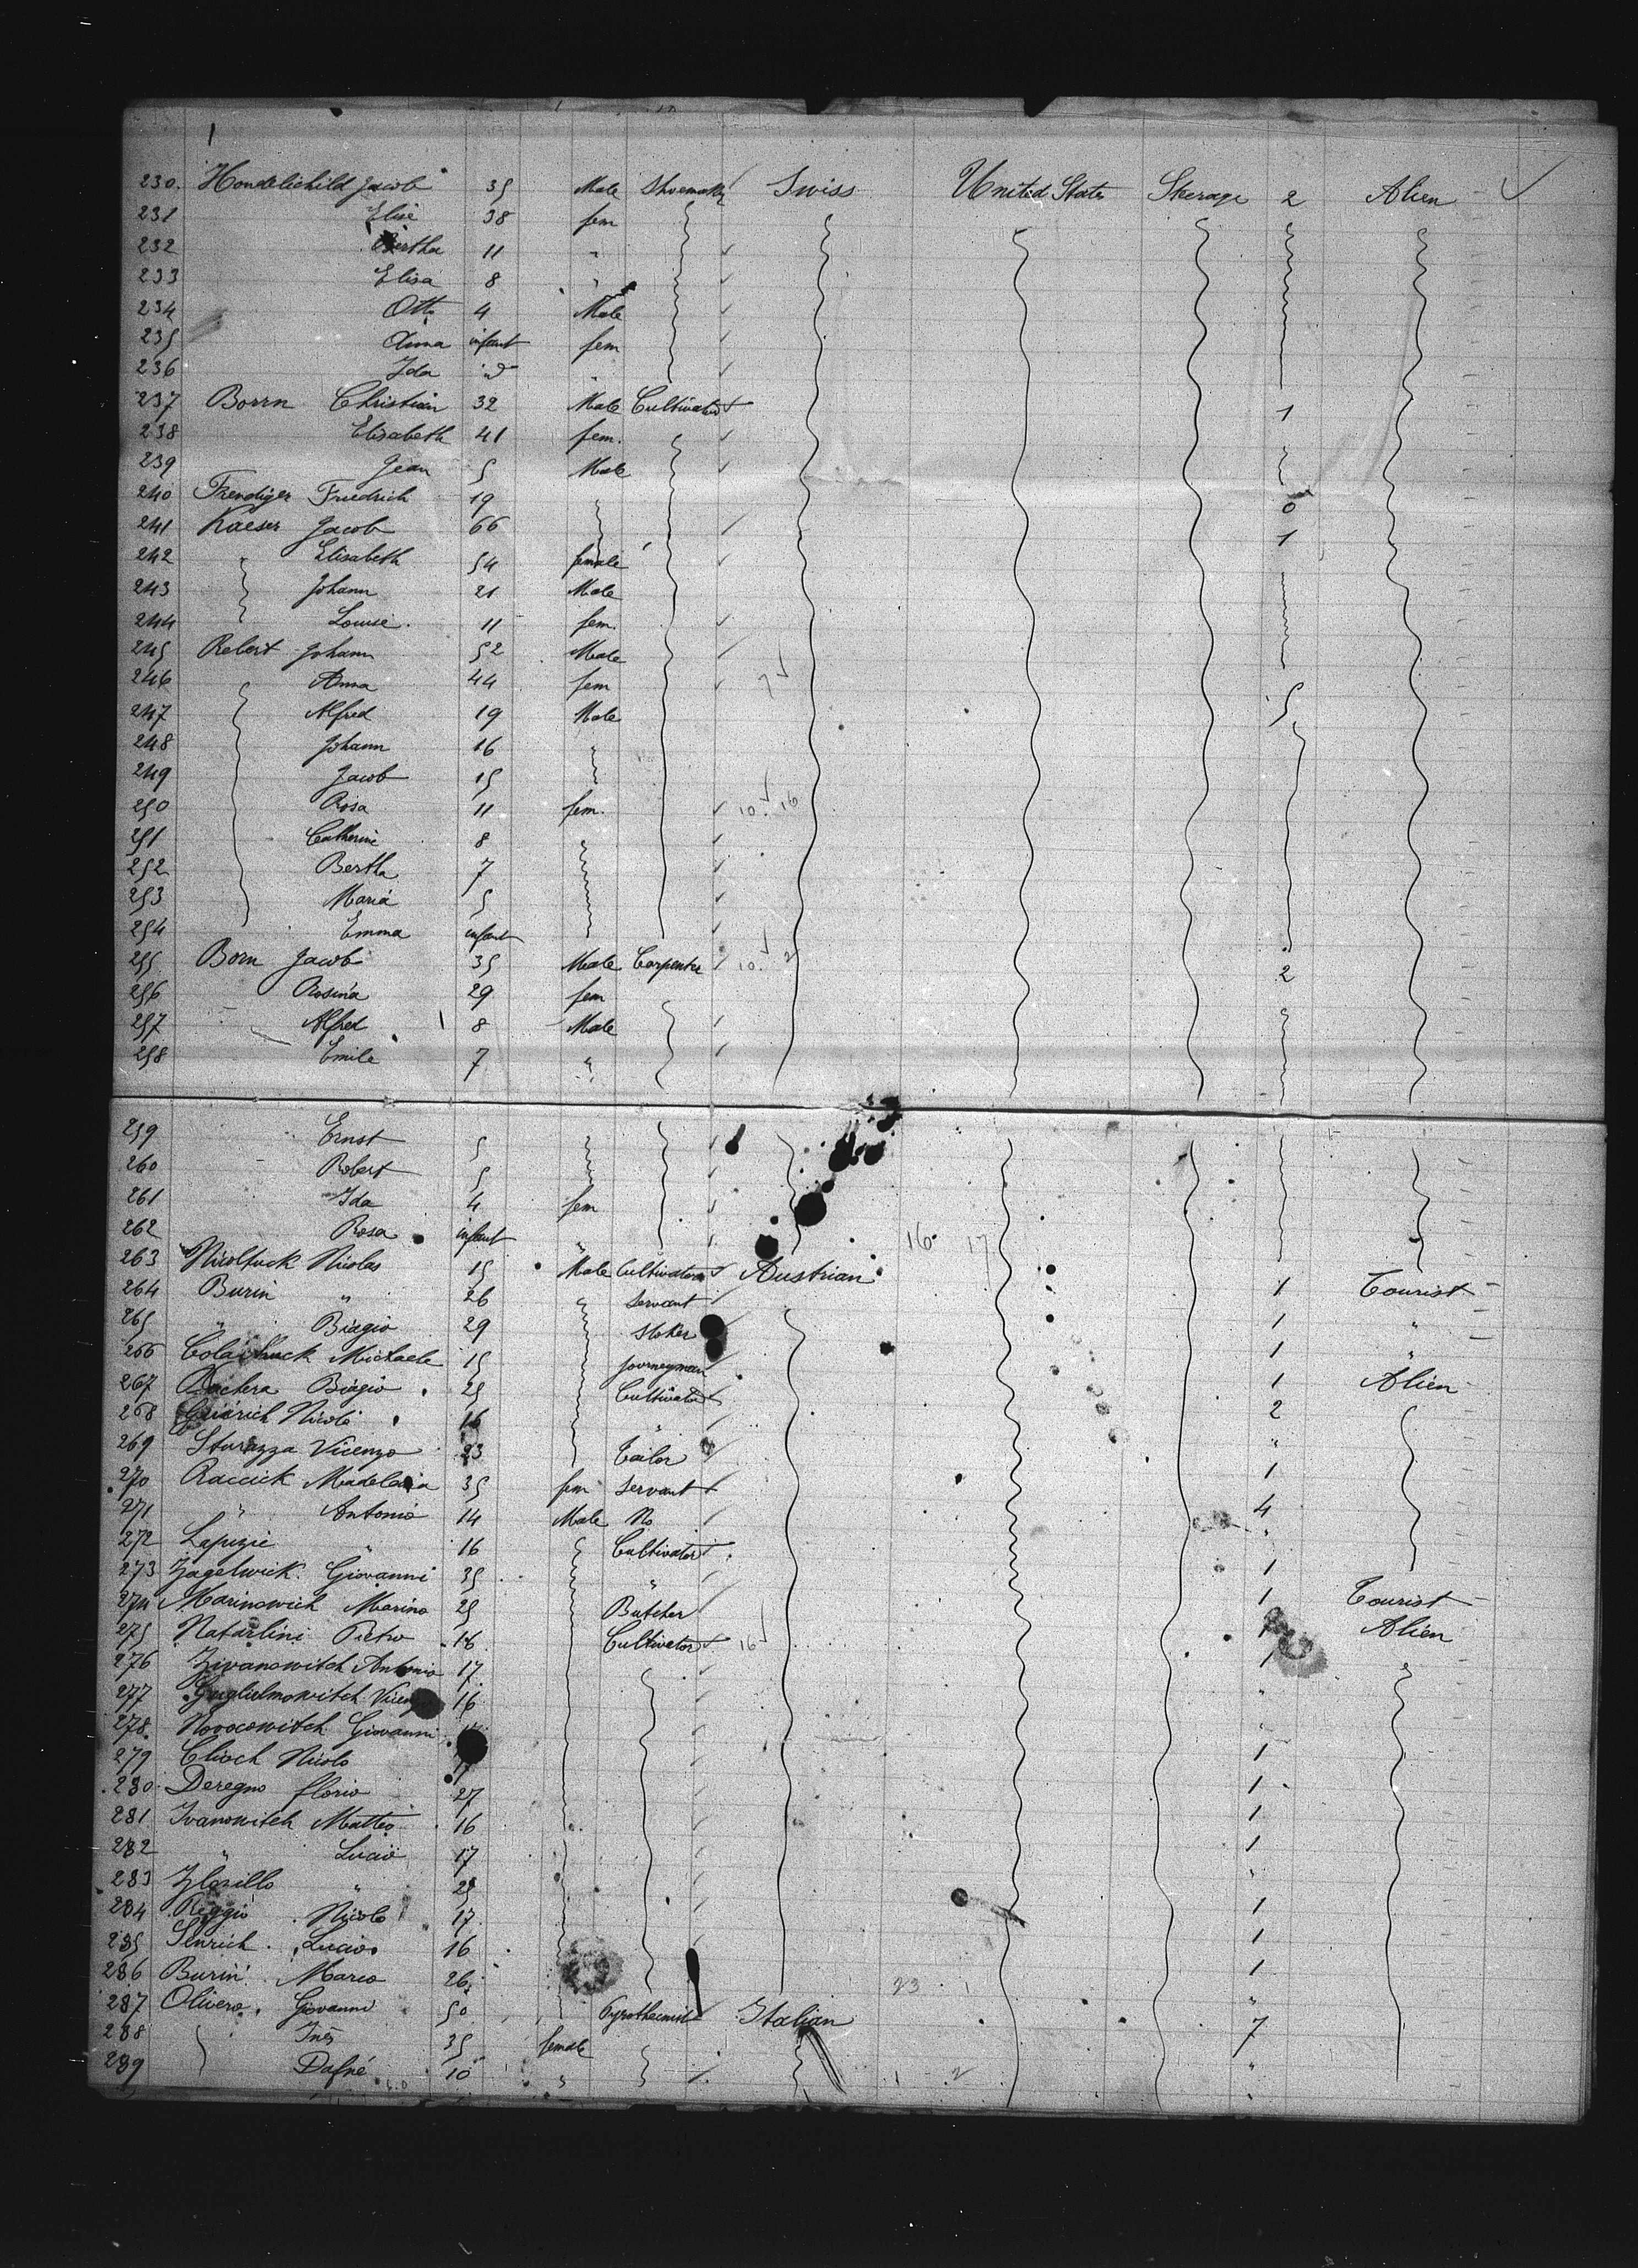 230. Hondelichild Jacob 35 Male Shoemaker Swiss United States Steerage 2 Alien
231 Elise 38 fem
232 Bertha 11 "
233 Elisa 8 "
234 Otto 4 Male
235 Anna infant fem
236 Ida id "
237 Borrn Christian 32 Male Cultivator 1
238 Elisabeth 41 fem.
239 Jean 5 Male
240 Frendiger Friedrich 19 0
241 Kaeser Jacob 66 1
242 Elisabeth 54 female
243 Johann 21 Male
244 Louise. 11 fem.
245 Robert Johann 52 Male
246 Anna 44 fem 7 5
247 Alfred 19 Male
248 Johann 16 "
249 Jacob 15
250 Rosa 11 fem. 10. 16
251 Catherine 8
252 Bertha 7
253 Maria 5
254 Emma infant
255 Born Jacob 35 Male Carpenter 10. 2 2
256 Rosina 29 fem
257 Alfred 8 Male
258 Emile 7 "
259 Ernst 5
260 Robert 5
261 Ida 4 fem
262 Rosa infant " 16. 17
263 Nicolas 15 Male Cultivator Austrian 1 Tourist
264 Burin " 26 " Servant 1 "
265 " Biagio 29 Stoker 1 "
266 Michaele 15 Journeyman 1 Alien
267 Bachera Biagio 25 Cultivator 2
268 Nicolo 16 " "
269 Sturazza Vicenzo 23 Tailor 1
270 Raccick Madelena 35 fem Servant 4
271 " Antonio 14 Male No "
272 Lapizie " 16 Cultivator 1
273 Zagelwick Giovanni 35 " 1 Tourist
274 Marinowich Marino 25 Butcher Alien
275 Natarlini Pietro 16 Cultivator 16 1
276 Zivanowitch Antonio 17 "
277 Guglielmowitch 16 "
278. Novocowitch Giovanni 1
279 Clioch Nicolo 17 1
280. Deregno florio 27 1
281 Ivanowitch Matteo 16 1
282 " Lucio 17 "
283 Zlorillo " 25 1
284 Reggio Nicolo 17 1
285 Senrich Lucio 16 1
286 Burin Marco 26 23 "
287 Olivero Giovanni 50 Pyrothecnist Italian 7
288 Inès 35 female "
289 Dafné 10 " 2 "